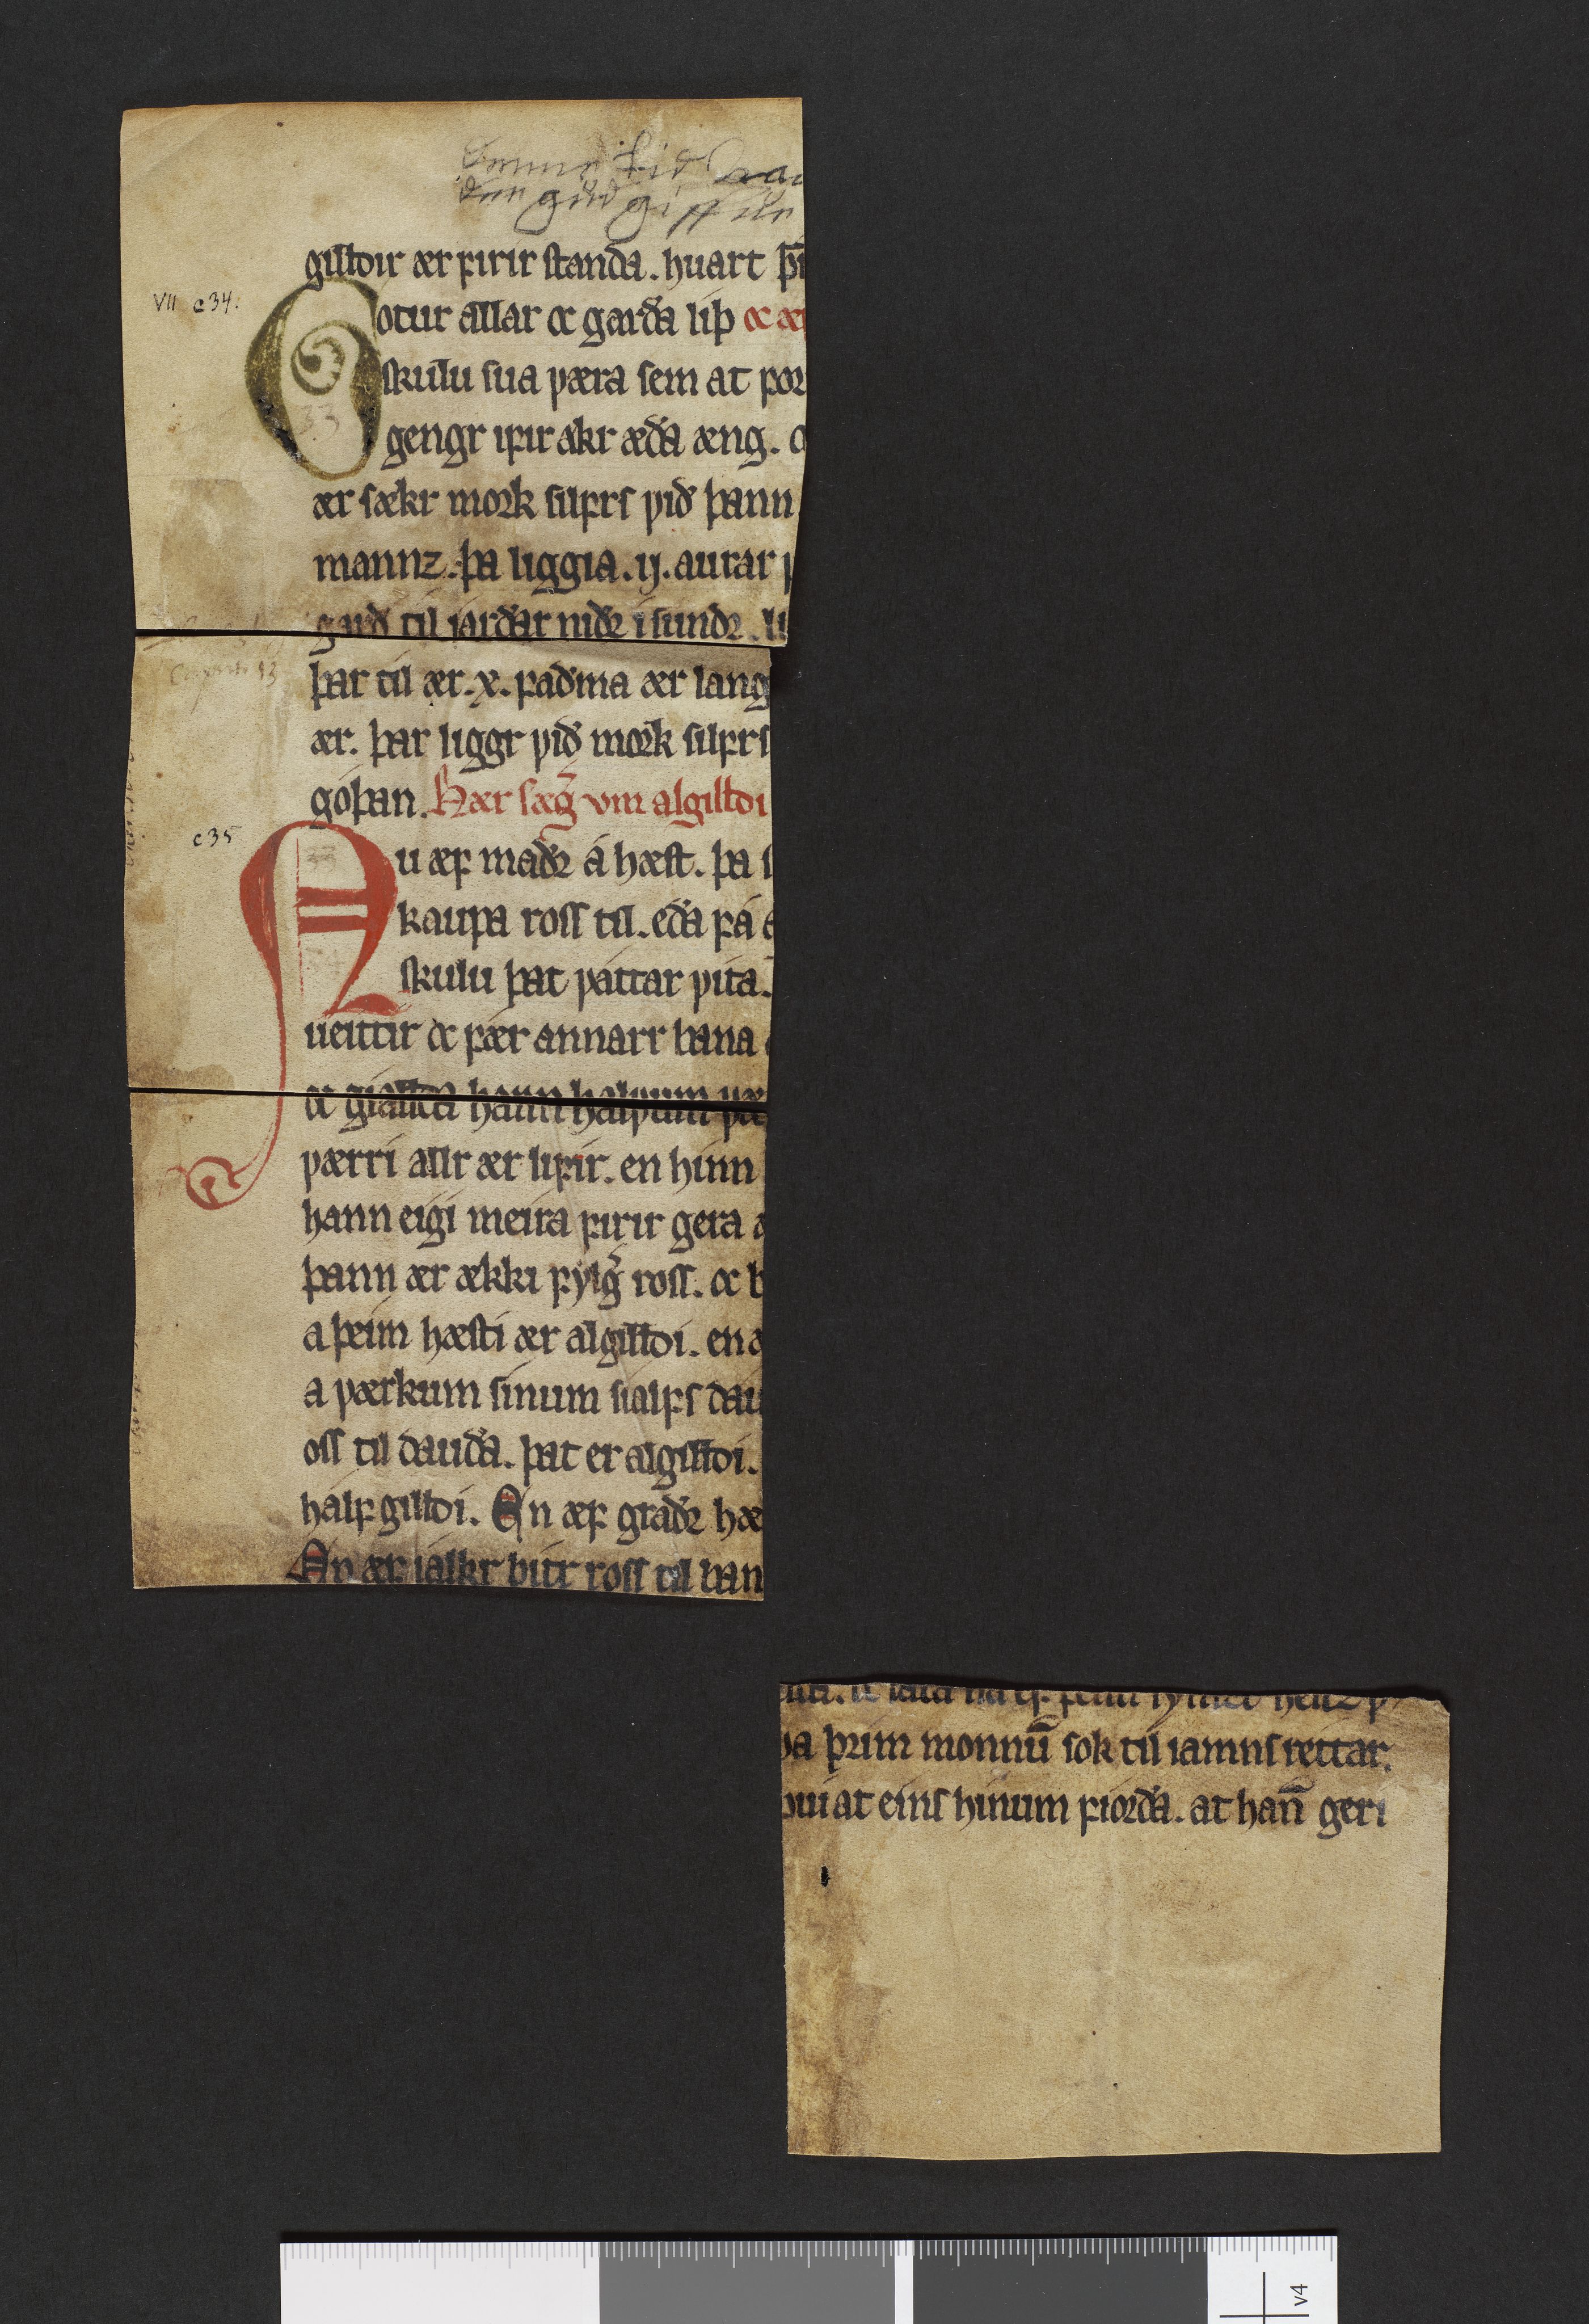 gilldir ær firir standa. huart þ
VII c 34.
Gotur allar oc garða liþ oc æ
skulu sua væra sem at for
gengr ifir akr æða æng. o
ær sækr mork silfrs við þann
mannz. þa liggia. ij. aurar
garð til iarðar niðr i sundr. li
þar til ær. x. faðma ær lang
ær. þar liggr við mork silfrs
góþan. Hær sæg̃ vm algilldi
c 35
Nu æf maðr á hæst. þa s
kaupa ross til. eða fá
skulu þat váttar vita.
ueittir oc fær annarr bana
oc giallda hann halvum væ
værri allr ær lifir. en hinn
hann eigi meira firir gera
þann ær ækki fylg̃ ross. oc b
a þeim hæsti ær algilldi. en
a værkum sinum sialfs dau
oss til dauða. þat er algilldi.
halfgilldi. En æf graðr hæ
En æf ialkr bitr ross til ban
þa þrim monnū sok til iamns rettar.
þuiat eins hinum fiorða. at han̄ geri
v4